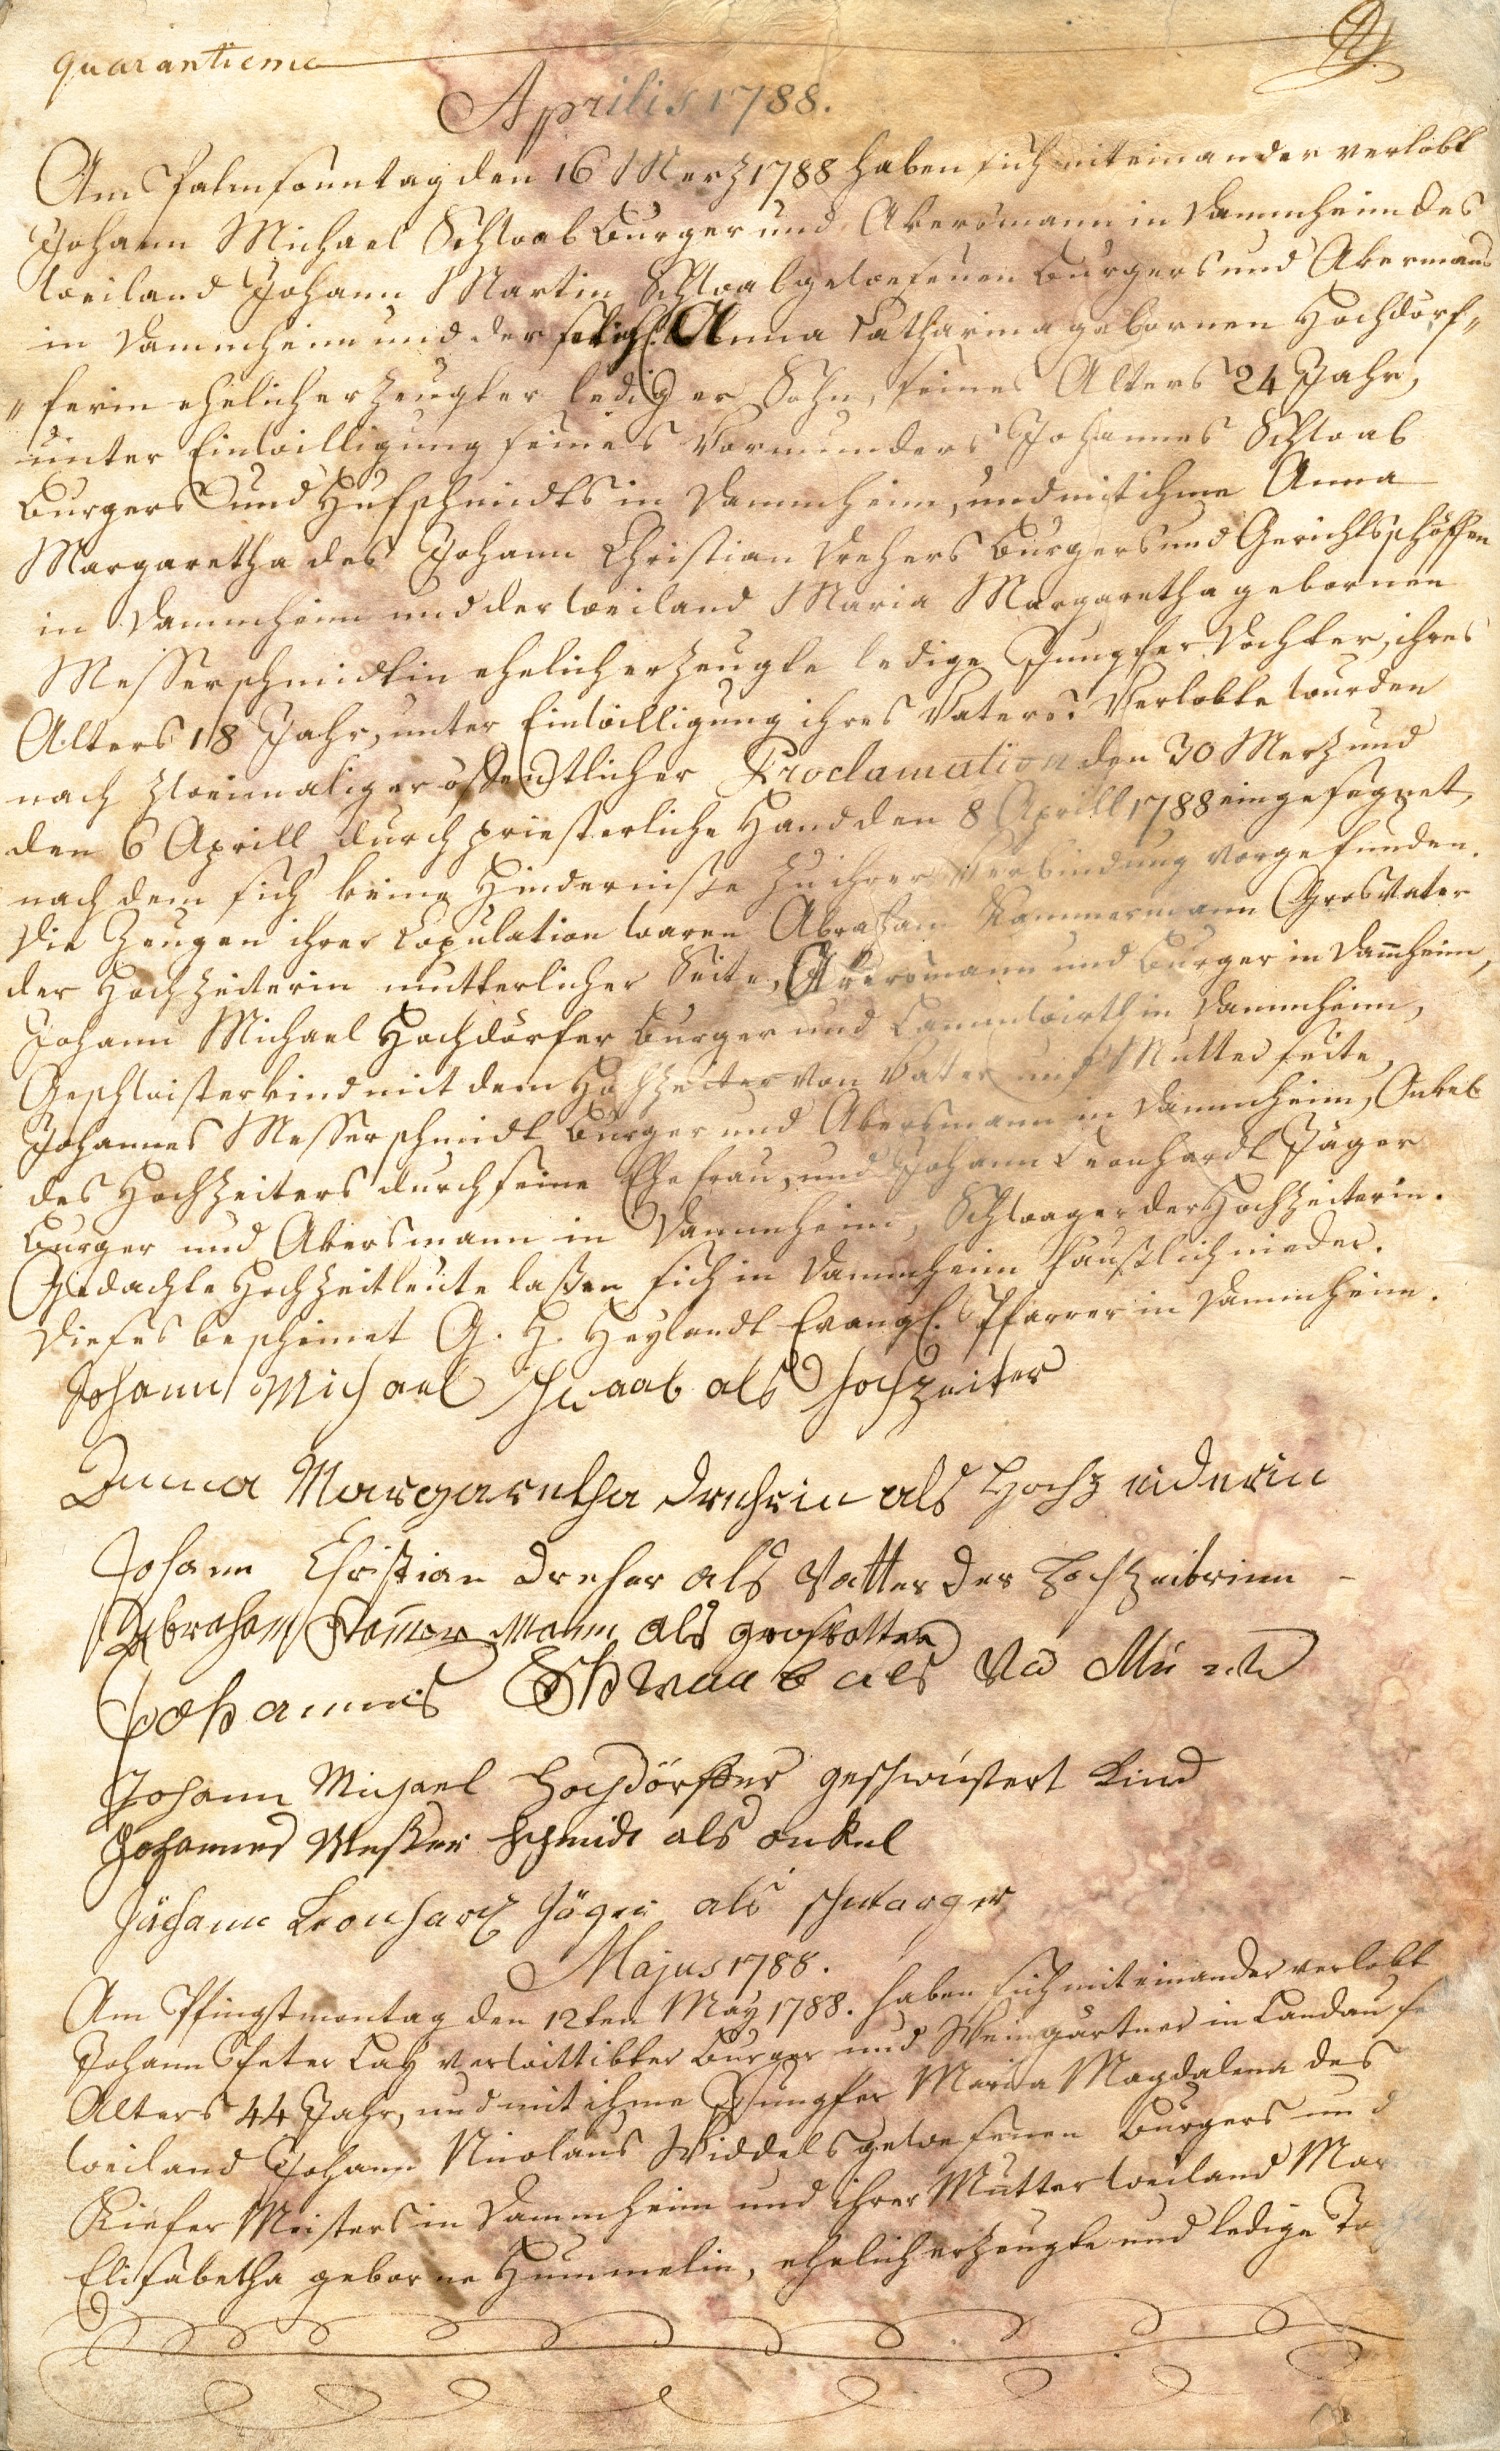 quarantieme
Aprilis 1788.
Am Palmsonntag den 16 Merz 1788 haben sich miteinander verlobt
Johann Michael Schwab Burger und Akersmann in Dammheim des
weiland Johann Martin Schwab gewesenen Burgers und Akermans
in Dammheim und der Anna Catharina gebornen Hochdorf„
„ferin ehelich erzeugter lediger Sohn, seines Alters 24 Jahr,
unter Einwilligung seines Vormunders Johannes Schwab
Burgers und Hufschmidts in Dammheim, und mit ihme Anna
Margaretha des Johann Christian Drehers Burgers und Gerichtsschöffen
in Dammheim und der weiland Maria Margaretha gebornen
Messerschmidtin ehelich erzeugte ledige Jungfer Dochter, ihres
Alters 18 Jahr, unter Einwilligung ihres Vaters. Verlobte wurden
nach zweimaliger öffentlicher Proclamation den 30 Merz und
den 6 Aprill durch priesterliche Hand den 8 Aprill 1788 eingesegnet,
nach dem sich keine Hinderniße zu ihrer Verbindung vorgefunden.
Die Zeugen ihrer Copulation waren Abraham Kammermann Grosvater
der Hochzeiterin mutterlicher Seite, Akersmann und Burger in Dam̄heim,
Johann Michael Hochdörfer Burger und Lammwirth in Dammheim,
Geschwisterkind mit dem Hochzeiter von Vater und Mutter seite,
Johannes Messerschmidt Burger und Akersmann in Dammheim, Onkel
des Hochzeiters durch seine Ehefrau, und Johann Leonhardt Jäger
Burger und Akersmann in Dammheim, Schwager der Hochzeiterin.
Gedachte Hochzeitleute laßen sich in Dammheim häußlich nieder.
Dieses bescheinet G. H. Heylandt Evangl. Pfarrer in Dammheim.
Johann Michael Schwaab als Hochzeiter
Anna Margaretha Drehrin als Hochzeiderin
Johann Christian Dreher als Vatter der Hochzeiterinn
Abraham Kam̄erMann als grosvatter
Johannes Schwaab als
Johann Michael Hochdörffer geschwistert Kind
Johannes Meßerschmidt als onkel
Johann Leonhard Jäger als schwarger
Majus 1788.
Am Pfingstmontag den 12ten May 1788. haben sich miteinander verlobt
Johann Peter Catz verwittibter Burger und Weingärtner in Landau
Alters 44 Jahr, und mit ihme Jungfer Maria Magdalena des
weiland Johann Nicolaus Widdels gewesenen Burgers und
Kiefer Meisters in Dammheim und ihrer Mutter weiland
Elisabetha geborne Hummelin, ehelich erzeugte und ledige